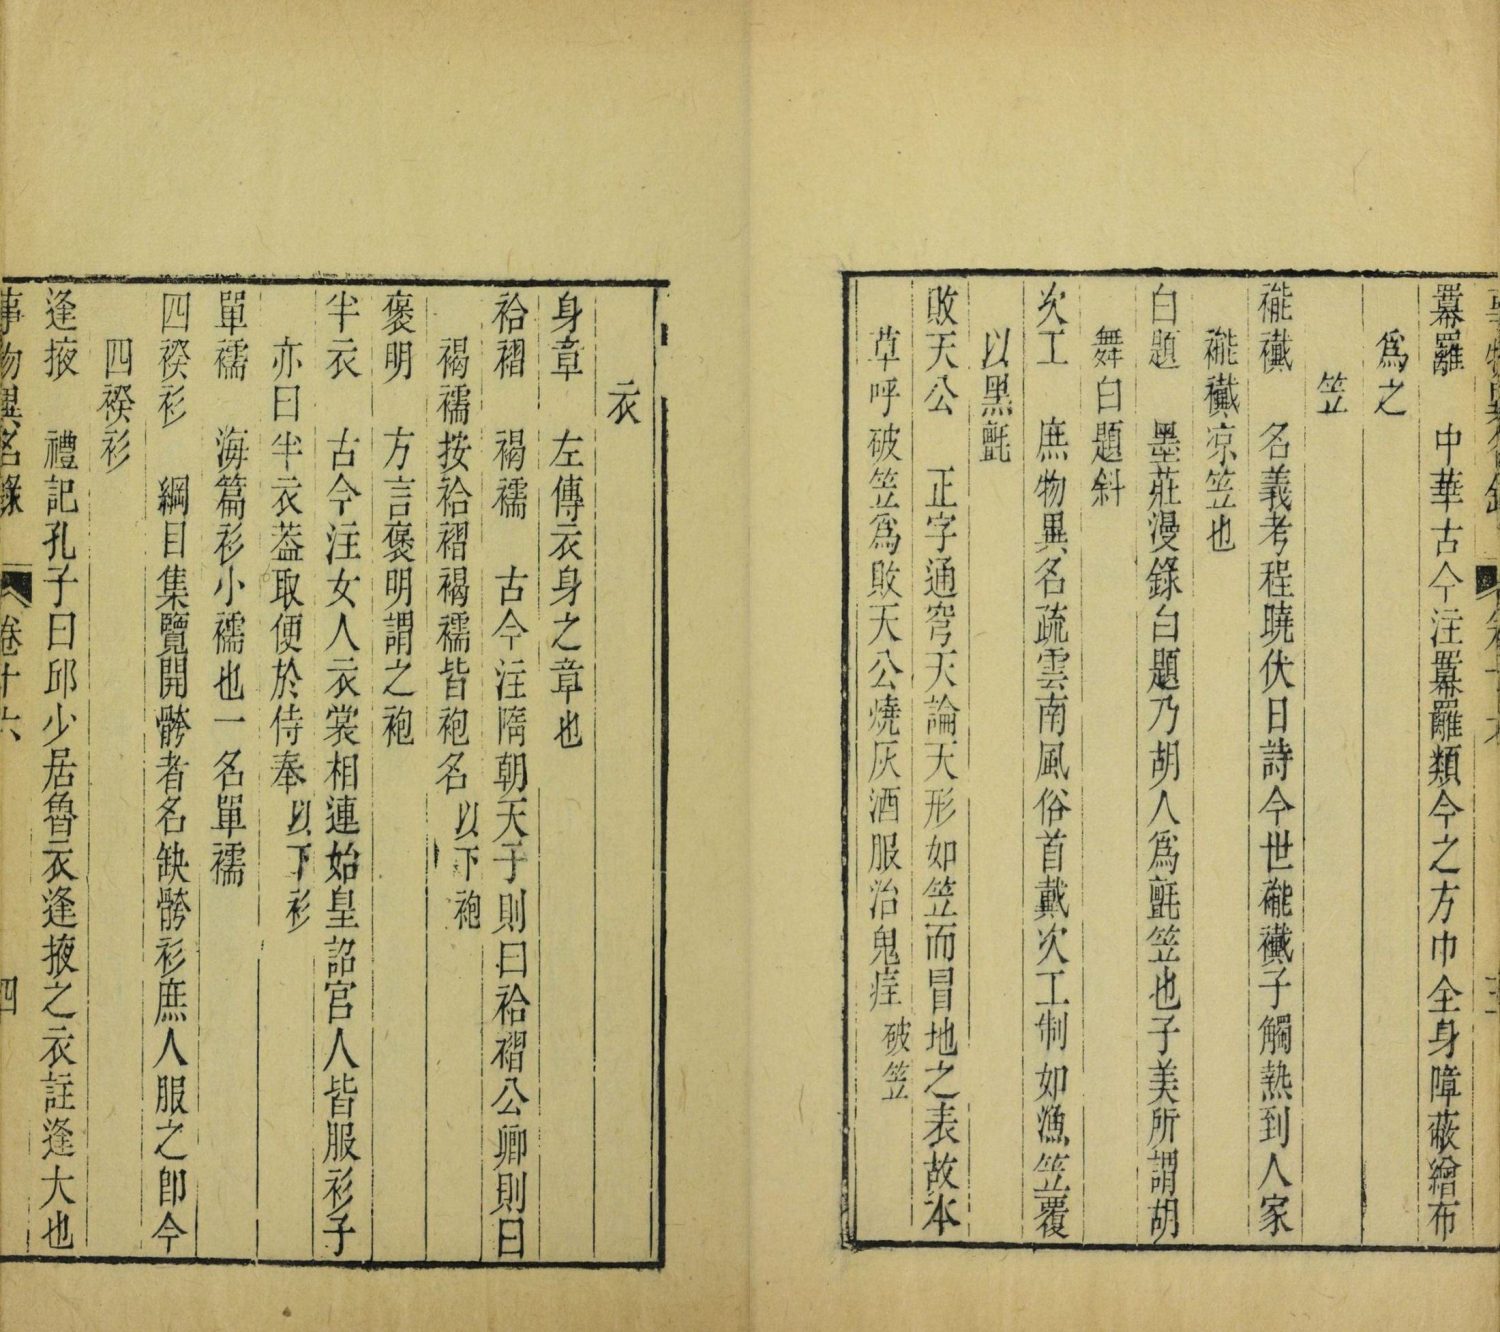 羃䍦　中華古今注羃䍦類今之方巾全身障蔽繒布
爲之
笠
褦襶　名義考程曉伏日詩今世褦襶子觸熱到人家
褦襶凉笠也
白題　墨莊漫錄白題乃胡人爲氈笠也子美所謂胡
舞白題斜
次工　庶物異名疏雲南風俗首戴次工制如漁笠覆
以黑氈
敗天公　正字通穹天論天形如笠而冒地之表故本
草呼破笠爲敗天公燒灰酒服治鬼疰　破笠
衣
身章　左傳衣身之章也
袷褶　褐襦　古今注隋朝天子則曰袷褶公卿則曰
褐襦按袷褶褐襦皆袍名　以下袍
褒明　方言褒明謂之袍
半衣　古今注女人衣裳相連始皇詔宮人皆服衫子
亦曰半衣葢取便於侍奉　以下衫
單襦　海篇衫小襦也一名單襦
四䙆衫　綱目集覽開骻者名缺骻衫庶人服之即今
四䙆衫
逢掖　禮記孔子曰邱少居魯衣逢掖之衣註逢大也
事物異名錄　卷十六　四